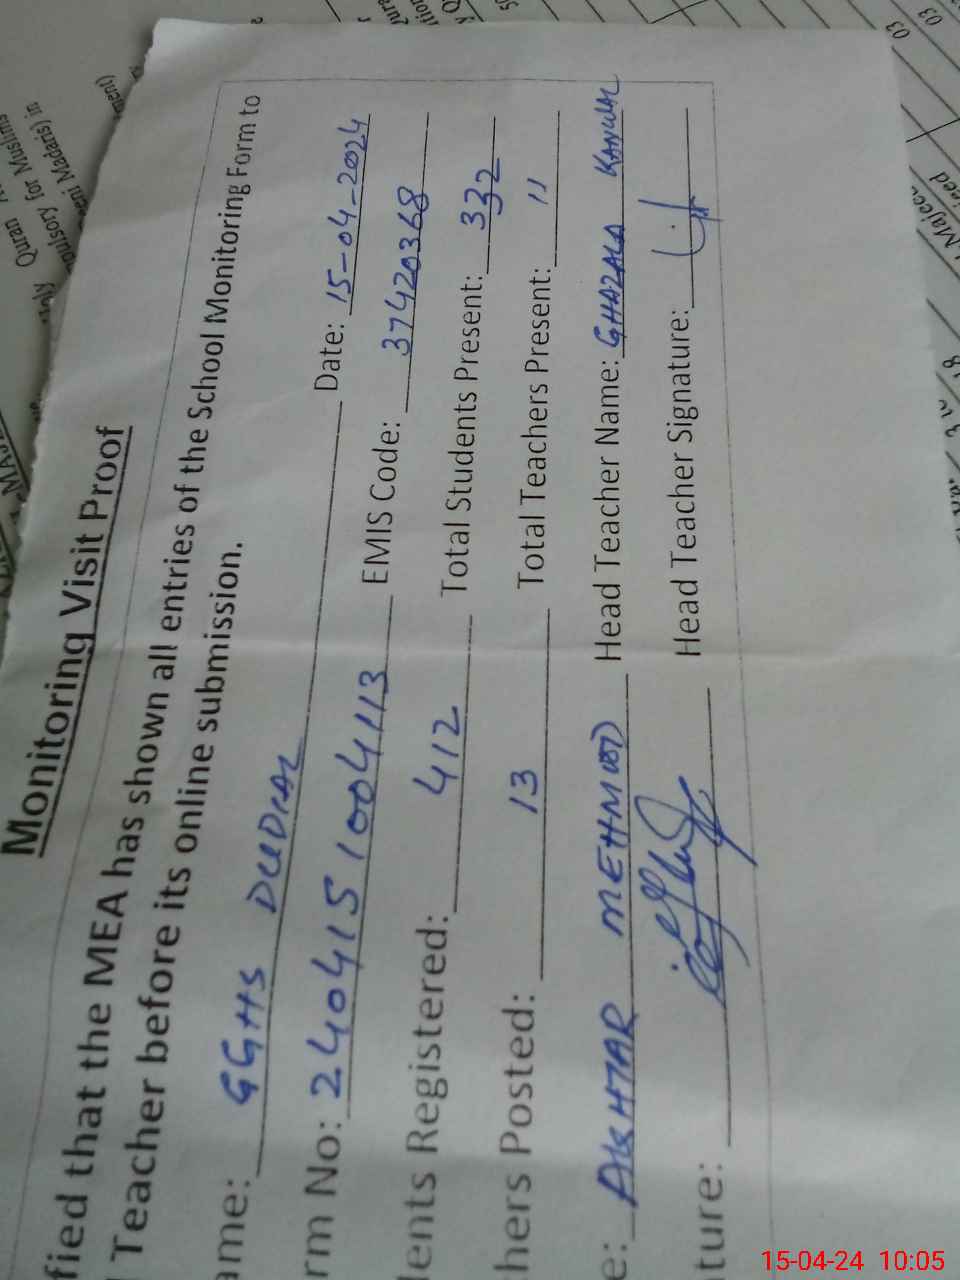 Monitoring Visit Proof
fied that the MEA has shown all entries of the School Monitoring Form to
Teacher before its online submission.
ame: GGHS DUDIAL Date: 15-04-2024
rm No: 240415 1004113 EMIS Code: 37420368
dents Registered: 412 Total Students Present: 332
hers Posted: 13 Total Teachers Present: 11
e: AKHTAR MEHMOOD Head Teacher Name: GHAZALA KANWAL
ture: Head Teacher Signature:
Quran
pulsory for Muslims
eeni Madaris) in
ment)
Majeed
03
03
15-04-24 10:05